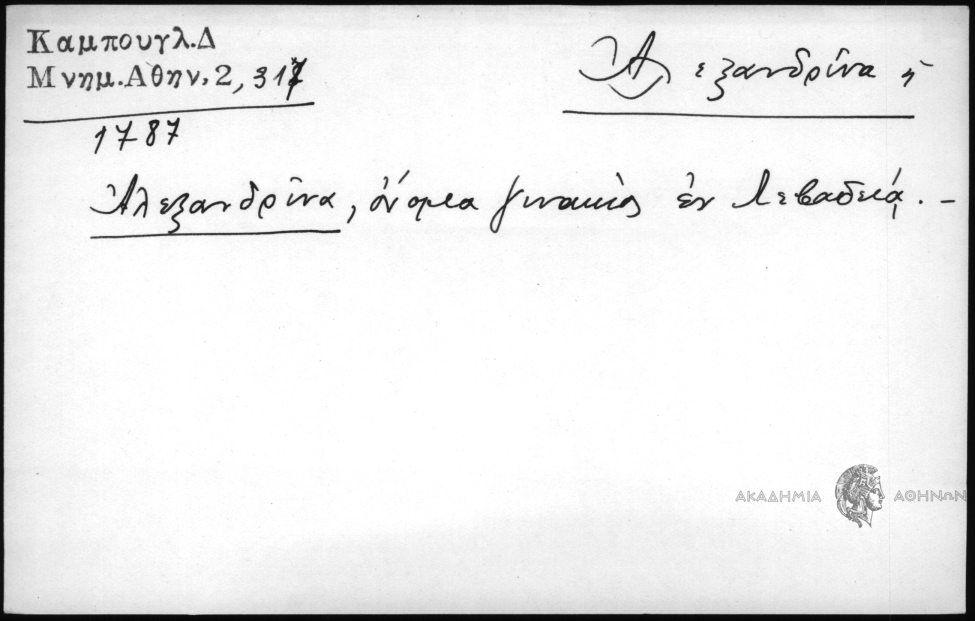 Καμπουγλ.Δ
Μνημ.Αθην.2, 317
1787
Ἀλεξανδρῖνα ἡ
Ἀλεξανδρῖνα, ὄνομα γυναικὸς ἐν Λεβαδείᾳ. –
ΑΚΑΔΗΜΙΑ ΑΘΗΝΩΝ